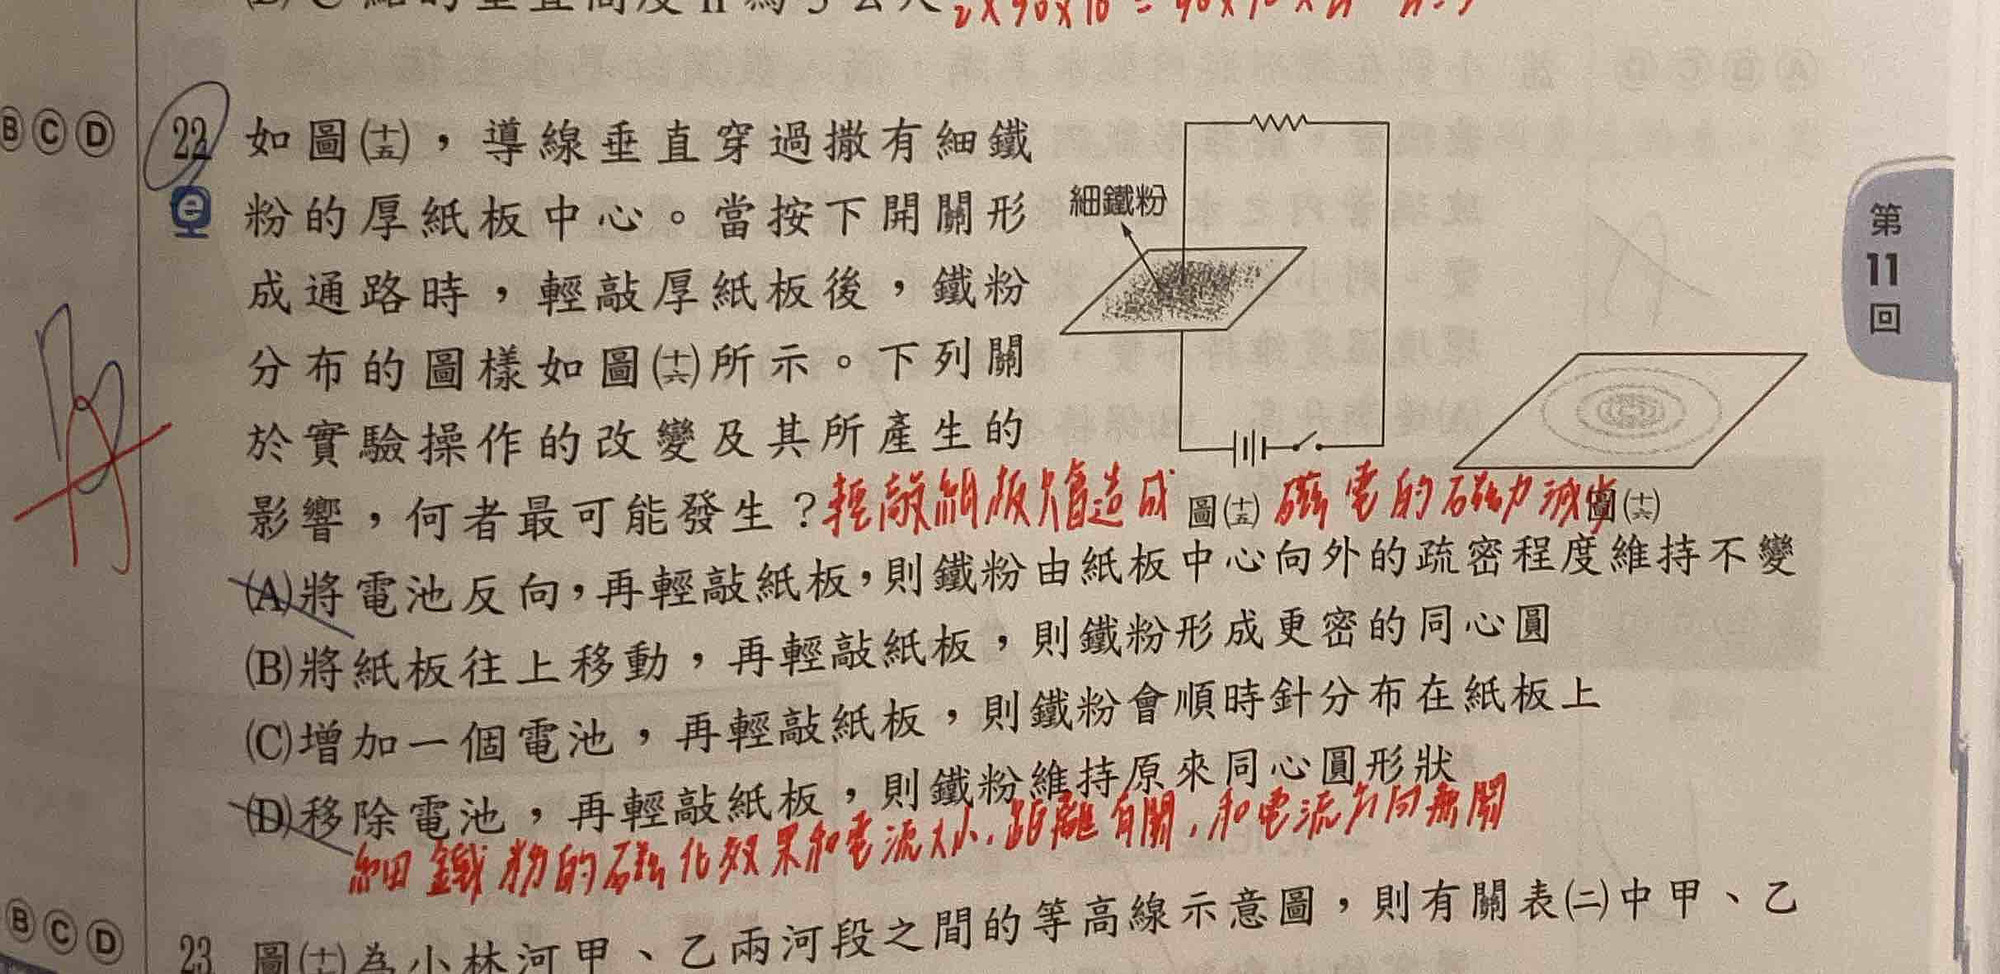 22 如圖㈩五,導線垂直穿過撒有細鐵
粉的厚紙板中心。當按下開關形
成通路時,輕敲厚紙板後,鐵粉
分布的圖樣如圖(十六)所示。下列關
於實驗操作的改變及其所產生的
影響,何者最可能發生?輕敲紙板會造成磁電的磁力減少
細鐵粉
圖(十五)
圖(十六)
(A)將電池反向,再輕敲紙板,則鐵粉由紙板中心向外的疏密程度維持不變
(B)將紙板往上移動,再輕敲紙板,則鐵粉形成更密的同心圓
(C)增加一個電池,再輕敲紙板,則鐵粉會順時針分布在紙板上
(D)移除電池,再輕敲紙板,則鐵粉維持原來同心圓形狀
細鐵粉的磁化效果和電流大小、距離有關,和電流方向無關
23 圖(十七)為小林河甲、乙兩河段之間的等高線示意圖,則有關表(二)中甲、乙
第
11
回
B C D
B C D